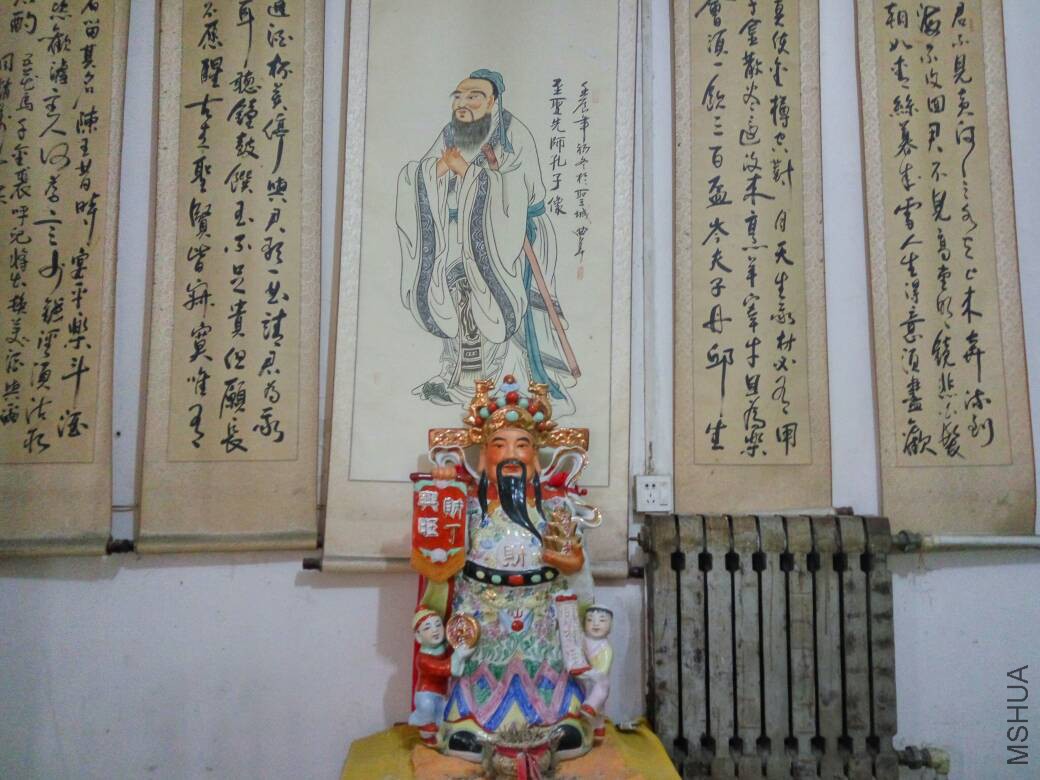 君不見黄河之水天上来奔流到
海不復回君不見高堂明鏡悲白髮
朝如青絲暮成雪人生得意須盡歡
莫使金樽空對月天生我材必有用
千金散盡還復来烹羊宰牛且為樂
會須一飲三百盃岑夫子丹邱生
壬辰年初冬於聖城曲阜
至聖先師孔子像
進酒杯莫停與君歌一曲請君為我
耳聽鐘鼓饌玉不足貴但願長
不應醒古来聖賢皆寂寞唯有
者留其名陳王昔時宴平樂斗酒
恣歡謔主人何為言少錢徑須沽取
酌五花馬千金裘呼兒將出換美酒與爾
財丁
興旺
財
MSHUA